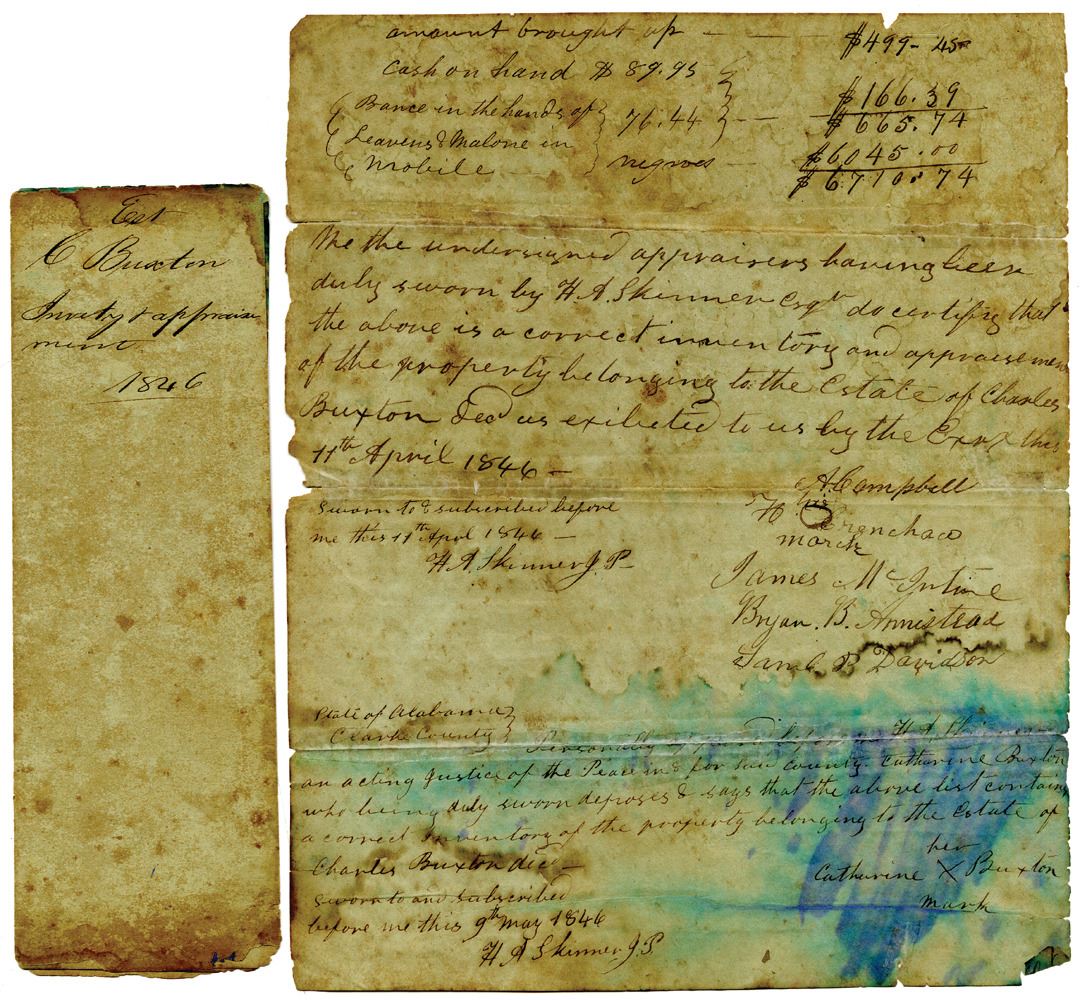 Est
C Buxton
Invty & appraise
ment
1846
amount brought up — $499-45
Cash on hand $ 89.95
$166.39
Bance in the hands of 76.44 — $ 665.74
Leavens & Malone in
Mobile negroes — $6045.00
$ 6710.74
We the undersigned appraisers having been
duly sworn by H A Skinner Esqr do certify that
the above is a correct inventory and appraisement
of the property belonging to the Estate of Charles
Buxton Decd as exibeted to us by the Exrx this
11th April 1846 —
A Campbell
sworn to & subscribed before
H his
me this 11th Apl 1846 —
mark
H A Skinner J.P.
James McIntire
Bryan. B. Armistead
Saml B Davidson
State of Alabama
Clarke County Personally appeared before me H A Skinner
an acting Justice of the Peace in & for said County. Catharine Buxton
who being duly sworn deposes & says that the above list contains
a correct Inventory of the property belonging to the Estate of
Charles Buxton decd —
her
Catharine X Buxton
mark
sworn to and subscribed
before me this 9th May 1846
H A Skinner J.P.